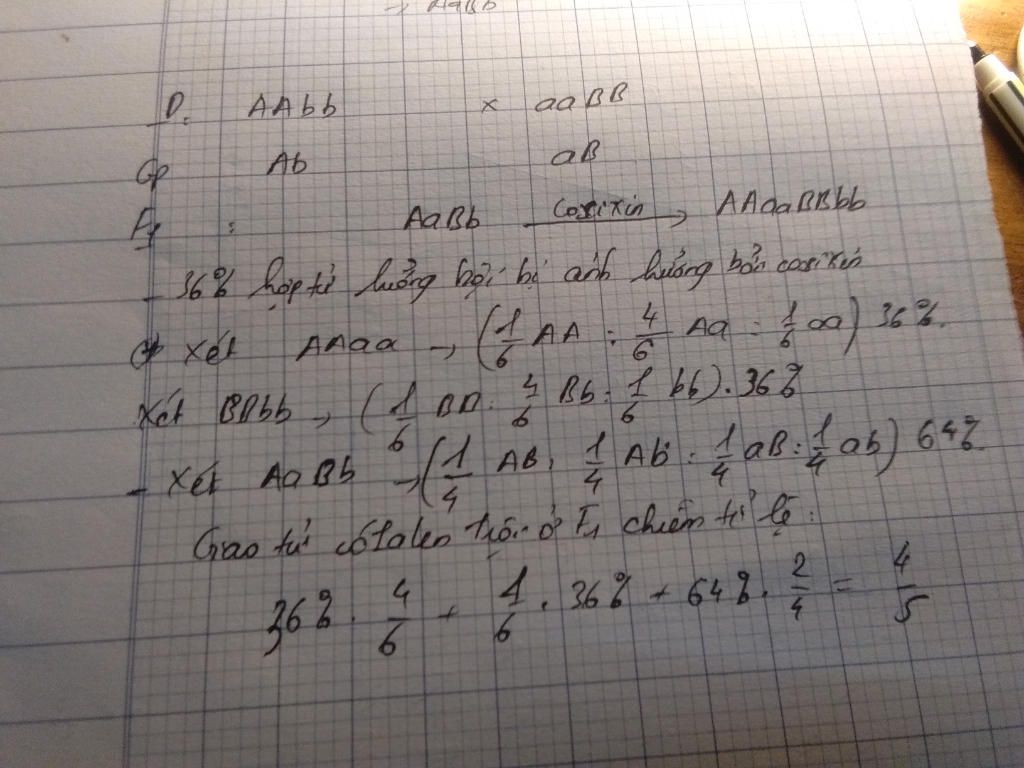 AaBb
P: AAbb × aaBB
Gp Ab aB
F1 : AaBb cosixin → AAaaBBbb
- 36% hợp tử lưỡng bội bị ảnh hưởng bởi cosixin
Xét AAaa → (1/6 AA : 4/6 Aa : 1/6 aa) 36%.
Xét BBbb → (1/6 BB : 4/6 Bb : 1/6 bb). 36%
- Xét AaBb → (1/4 AB : 1/4 Ab : 1/4 aB : 1/4 ab) 64%
Giao tử có 1 alen trội ở F1 chiếm tỉ lệ :
36% . 4/6 + 1/6 . 36% + 64% . 2/4 = 4/5